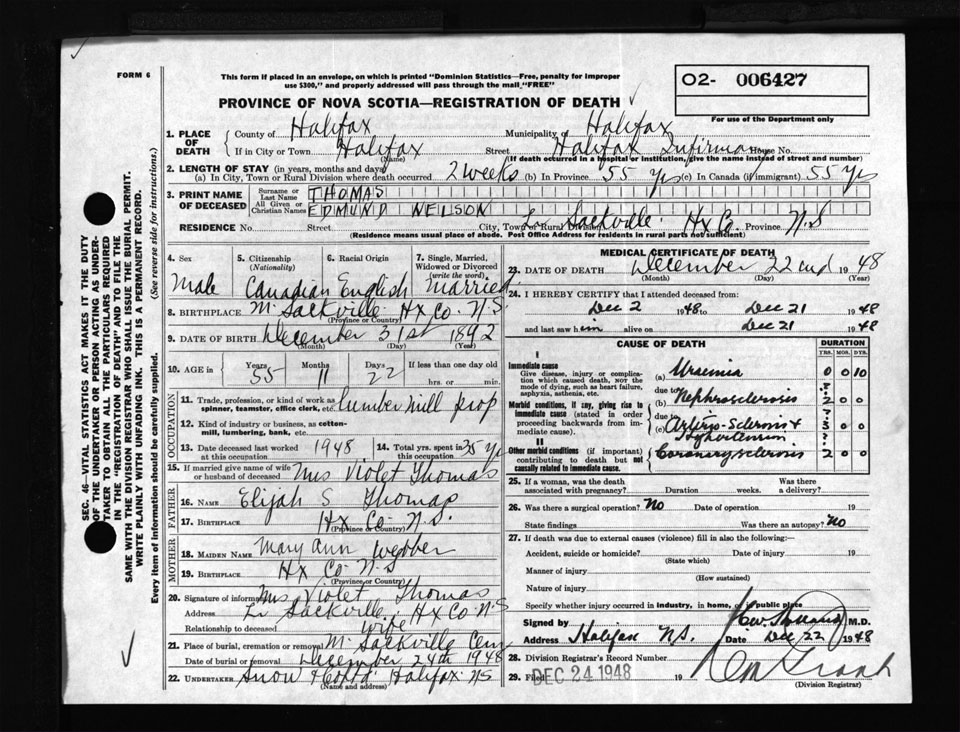 FORM 6
This form if placed in an envelope, on which is printed "Dominion Statistics—Free, penalty for improper
use $300," and properly addressed will pass through the mail "FREE"
O2- 006427
PROVINCE OF NOVA SCOTIA—REGISTRATION OF DEATH
For use of the Department only
1. PLACE OF DEATH
County of Halifax Municipality of Halifax
If in City or Town Halifax Street Halifax Infirmary House No.
(Name) (If death occurred in a hospital or institution, give the name instead of street and number)
2. LENGTH OF STAY (in years, months and days)
(a) In City, Town or Rural Division where death occurred 2 weeks (b) In Province 55 yrs (c) In Canada (if immigrant) 55 yrs
3. PRINT NAME OF DECEASED
Surname or Last Name THOMAS
All Given or Christian Names EDMUND NELSON
RESIDENCE No. Street City, Town or Rural Division L. Sackville Hx Co. Province N.S
(Residence means usual place of abode. Post Office Address for residents in rural parts not sufficient)
4. Sex Male
5. Citizenship (Nationality) Canadian
6. Racial Origin English
7. Single, Married, Widowed or Divorced (write the word) Married
8. BIRTHPLACE M. Sackville Hx Co. N.S.
(Province or Country)
9. DATE OF BIRTH December 31st 1892
(Month) (Day) (Year)
10. AGE in Years 55 Months 11 Days 22 If less than one day old
hrs. or min.
OCCUPATION
11. Trade, profession, or kind of work as
spinner, teamster, office clerk, etc. lumber mill prop
12. Kind of industry or business, as cotton-
mill, lumbering, bank, etc.
13. Date deceased last worked
at this occupation 1948
14. Total yrs. spent in
this occupation 35 yrs
15. If married give name of wife
or husband of deceased Mrs Violet Thomas
FATHER
16. NAME Elijah S Thomas
17. BIRTHPLACE Hx Co. N.S.
(Province or Country)
MOTHER
18. MAIDEN NAME Mary Ann Webber
19. BIRTHPLACE Hx Co. N.S
(Province or Country)
20. Signature of informant Mrs Violet Thomas
Address L. Sackville Hx Co N.S
Relationship to deceased wife
21. Place of burial, cremation or removal M. Sackville Cem
Date of burial or removal December 24th 1948
22. UNDERTAKER Snow Halifax NS
(Name and address)
MEDICAL CERTIFICATE OF DEATH
23. DATE OF DEATH December 22nd 1948
(Month) (Day)
24. I HEREBY CERTIFY that I attended deceased from:
Dec 2 1948 to Dec 21 1948
and last saw him alive on Dec 21 1948
CAUSE OF DEATH DURATION
YRS. MOS. DYS.
I
Immediate cause
Give disease, injury or complica-
tion which caused death, NOT the
mode of dying, such as heart failure,
asphyxia, asthenia, etc.
(a) Uraemia 0 0 10
due to
(b) Nephrosclerosis ? 2 0 0
Morbid conditions, if any, giving rise to
immediate cause (stated in order
proceeding backwards from im-
mediate cause).
due to
(c) Arterio-sclerosis & Hypertension ? 3 0 0
II
Other morbid conditions (if important)
contributing to death but not
causally related to immediate cause.
Coronary sclerosis ? 2 0 0
25. If a woman, was the death
associated with pregnancy? Duration weeks. Was there
a delivery?
26. Was there a surgical operation? No Date of operation 19
State findings Was there an autopsy? No
27. If death was due to external causes (violence) fill in also the following:—
Accident, suicide or homicide? Date of injury 19
(State which)
Manner of injury
(How sustained)
Nature of injury
Specify whether injury occurred in industry, in home, or in public place
Signed by M.D.
Address Halifax N.S. Date Dec 22 1948
28. Division Registrar's Record Number
29. Filed DEC 24 1948 19
(Division Registrar)
SEC. 46—VITAL STATISTICS ACT MAKES IT THE DUTY
OF THE UNDERTAKER OR PERSON ACTING AS UNDER-
TAKER TO OBTAIN ALL THE PARTICULARS REQUIRED
IN THE "REGISTRATION OF DEATH" AND TO FILE THE
SAME WITH THE DIVISION REGISTRAR WHO SHALL ISSUE THE BURIAL PERMIT.
WRITE PLAINLY WITH UNFADING INK. THIS IS A PERMANENT RECORD.
Every item of information should be carefully supplied. (See reverse side for instructions.)